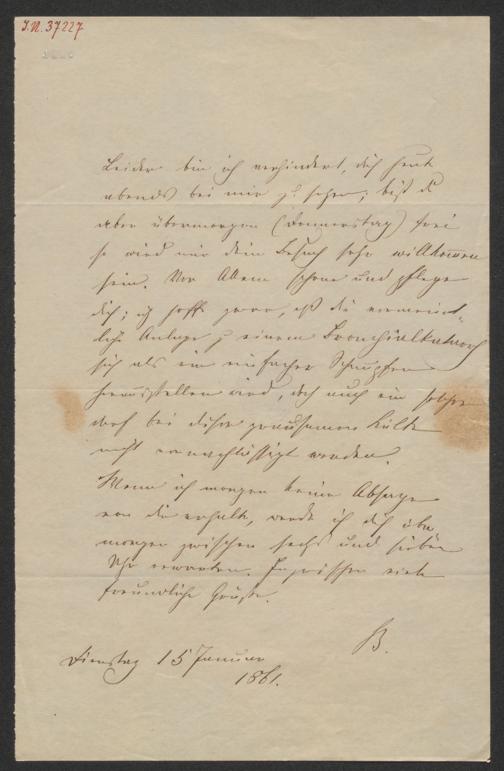 I.N. 37227
Leider bin ich verhindert, dich heute
abends bei mir zu sehen; bist du
aber übermorgen (Donnerstag) frei
so wird mir dein Besuch sehr willkommen
sein. Vor Allem schone und pflege
dich; ich hoffe zwar, daß die vermeint-
liche Anlage zu einem Bronchialkatarrh
sich als ein einfacher Schnupfen
herausstellen wird, doch auch ein solcher
darf bei dieser grausamen Kälte
nicht vernachlässigt werden.
Wenn ich morgen keine Absage
von dir erhalte, werde ich dich über
morgen zwischen sechs und sieben
Uhr erwarten. Inzwischen viele
freundliche Grüße.
B.
Dienstag 15 Januar
1861.